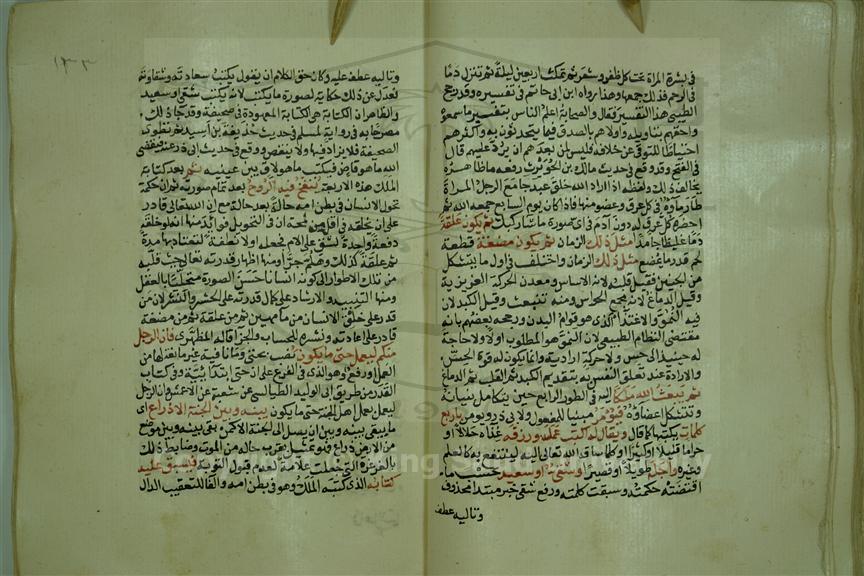 في بشرة المرأة تحت كل ظفر وشعر ثم تمكث اربعين ليلة ثم تنزل دما
في الرحم فذلك جمعها وهذا رواه ابن ابى حاتم في تفسيره وقد رجح
الطيبي هذا التفسير فقال والصحابة اعلم الناس بتفسير ما سمعوه
واحقهم بتاويله واولاهم بالصدق فيما يتحدثون به واكثرهم
احتياطا للتوقي عن خلافه فليس لمن بعدهم ان يرد عليهم قال
في الفتح وقد وقع في حديث مالك بن الحويرث رفعه ما ظاهره
يخالف ذلك ولفظه اذا اراد الله خلق عبد جامع الرجل المرأة
طار ماؤه في كل عرق وعضو منها فاذا كان يوم السابع جمعه الله ثم
احضره كل عرق له دون آدم في اى صورة ما شاء ركبك ثم يكون علقة
دما غليظا جامدا مثل ذلك الزمان ثم يكون مضغة قطعة
لحم قدر ما يمضغ مثل ذلك الزمان واختلف في اول ما يتشكل
من الجنين فقيل قلبه لانه الاساس ومعدن الحركة الغريزية
وقيل الدماغ لانه مجمع الحواس ومنه تنبعث وقيل الكبد لان
فيه النمو والاغتذاء الذى هو قوام البدن ورجحه بعضهم بانه
مقتضى النظام الطبيعي لان النمو هو المطلوب اولا ولا حاجة
له حينئذ الى حس ولا حركة ارادية وانما يكون له قوة الحس
والارادة عند تعلق النفس به بتقديم الكبد ثم القلب ثم الدماغ
ثم يبعث الله ملكا اليه في الطور الرابع حين يتكامل بنيانه
وتتشكل اعضاؤه فيؤمر مبنيا للمفعول ولابى ذر ويومر باربع
كلمات يكتبها كما قال ويقال له اكتب عمله ورزقه غذاءه حلالا او
حراما قليلا او كثيرا او كلما ساقه الله تعالى اليه لينتفع به كالعلم
وغيره واجله طويلا او قصيرا وشقي او سعيد حسب ما
اقتضته حكمته وسبقت كلمته ورفع شقي خبر مبتدا محذوف
وتاليه عطف
وتاليه عطف عليه وكان حق الكلام ان يقول يكتب سعادته وشقاوته
فعدل عن ذلك حكاية لصورة ما يكتب لانه يكتب شقى او سعيد
والظاهر ان الكتابة هى الكتابة المعهودة في صحيفة وقد جاء ذلك
مصرحا به في رواية لمسلم في حديث حذيفة بن اسيد ثم تطوى
الصحيفة فلا يزاد فيها ولا ينقص ووقع في حديث ابى ذر عنه فيقضى
الله ما هو قاض فيكتب ما هو لاق بين عينيه ثم بعد كتابة
الملك هذه الاربعة ينفخ فيه الروح بعد تمام صورته ثم ان حكمة
تحول الانسان في بطن امه حالة بعد حالة مع ان الله تعالى قادر
على ان يخلقه في اقل من لمحة ان في التحويل فوائد منها انه لو خلقه
دفعة واحدة لشق على الام فجعله اولا نطفة لتعتاد بها مدة
ثم علقة كذلك وهلم جرا ومنها اظهار قدرته تعالى حيث قلبه
من تلك الاطوار الى كونه انسانا حسن الصورة متحليا بالعقل
ومنها التنبيه والارشاد على كمال قدرته على الحشر والنشر لان من
قدر على خلق الانسان من ماء مهين ثم من علقة ثم من مضغة
قادر على اعادته ونشره للحساب والجزاء قاله المظهرى فان الرجل
منكم ليعمل حتى ما يكون نصب بحتى وما نافية غير مانعة لها من
العمل او رفع وهو الذى في الفرع على ان حتى ابتدائية وفي كتاب
القدر من طريق ابى الوليد الطيالسى عن شعبة عن الاعمش وان الرجل
ليعمل بعمل اهل الجنة حتى ما يكون بينه وبين الجنة الا ذراع اى
ما يبقى بينه وبين ان يصل الى الجنة الا كمن بقى بينه وبين موضع
من الارض ذراع فهو تمثيل بقرب حاله من الموت وضابط ذلك
بالغرغرة التى جعلت علامة لعدم قبول التوبة فيسبق عليه
كتابه الذى كتبه الملك وهو في بطن امه والفاء للتعقيب الدال